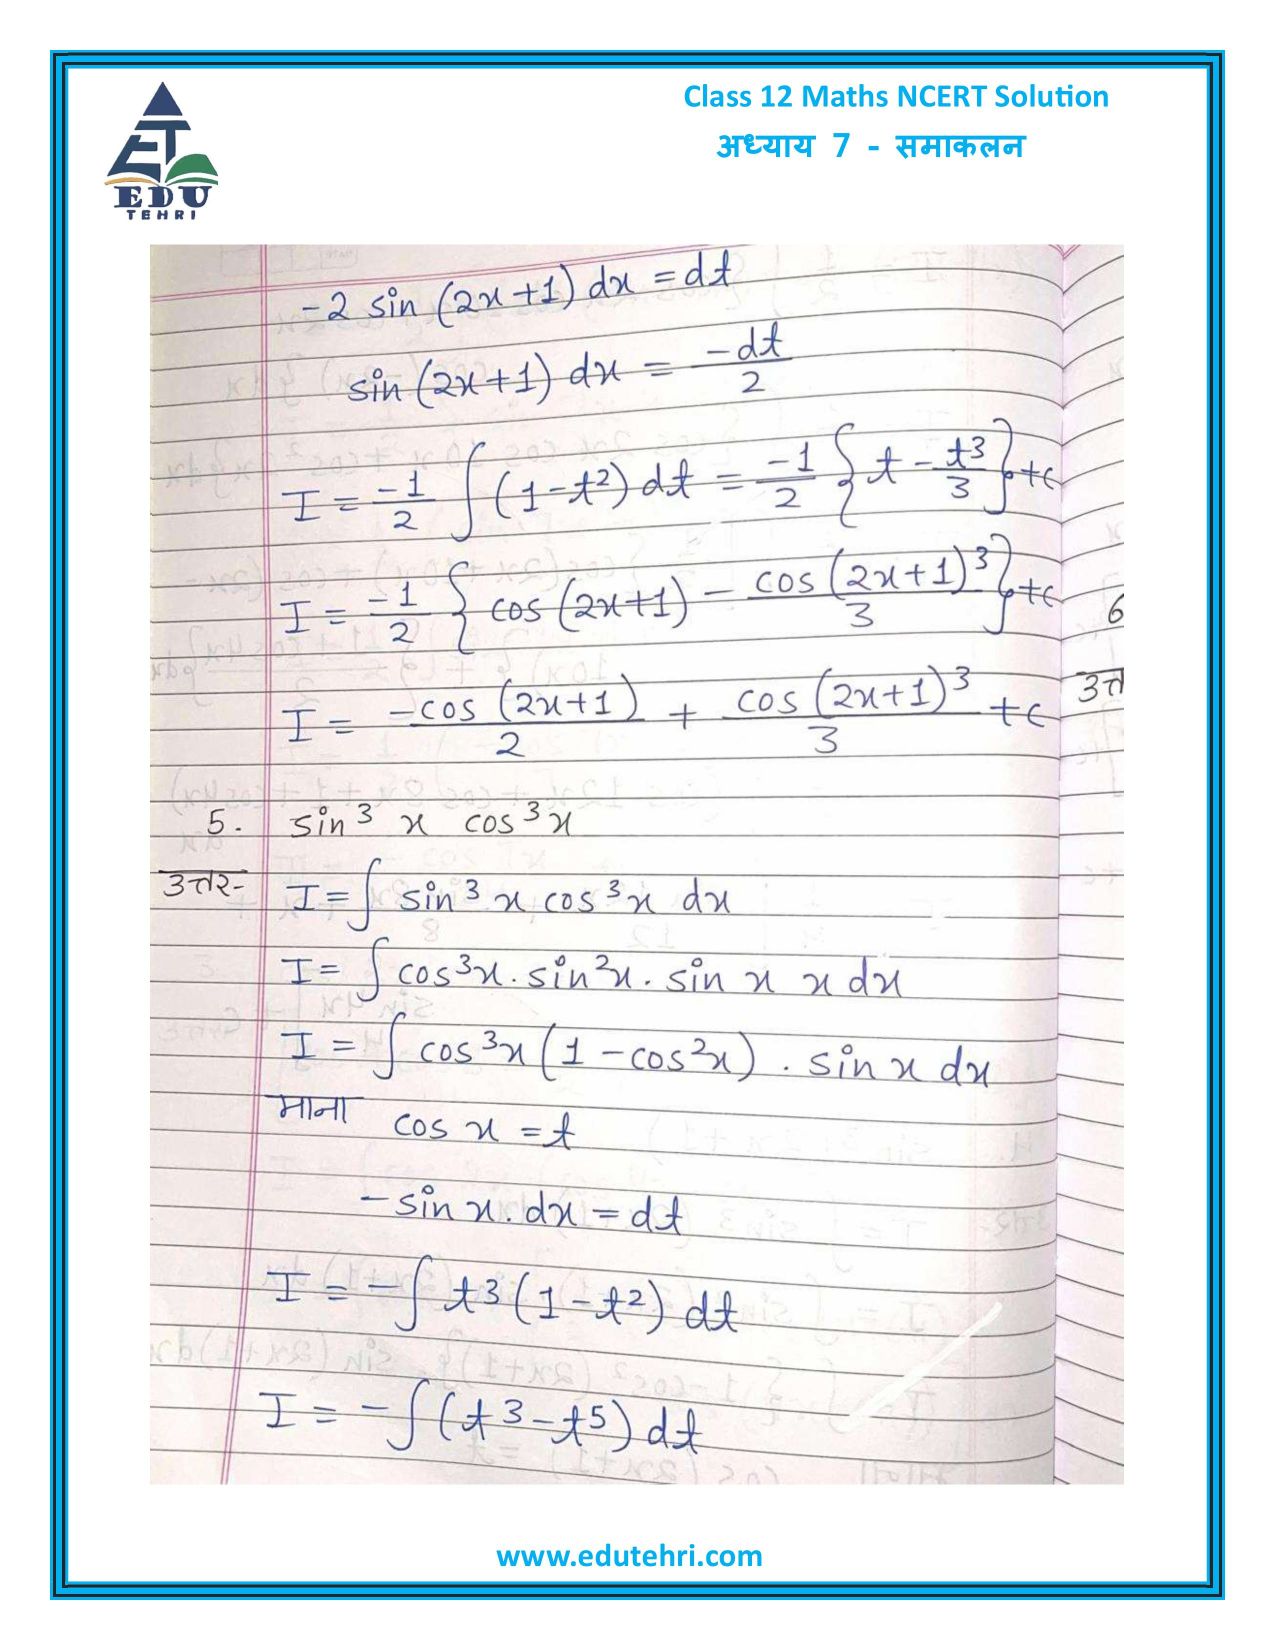 Class 12 Maths NCERT Solution
अध्याय 7 - समाकलन
EDU
TEHRI
-2 sin (2x+1) dx = dt
sin (2x+1) dx = -dt/2
I = -1/2 ∫ (1-t²) dt = -1/2 {t - t³/3} +c
I = -1/2 {cos (2x+1) - cos (2x+1)³/3} +c
I = -cos (2x+1)/2 + cos (2x+1)³/3 +c
5. sin³ x cos³x
उत्तर- I = ∫ sin³ x cos³x dx
I = ∫ cos³x . sin²x . sin x x dx
I = ∫ cos³x (1 - cos²x) . sin x dx
माना cos x = t
- sin x . dx = dt
I = - ∫ t³ (1 - t²) dt
I = - ∫ (t³ - t⁵) dt
6
www.edutehri.com